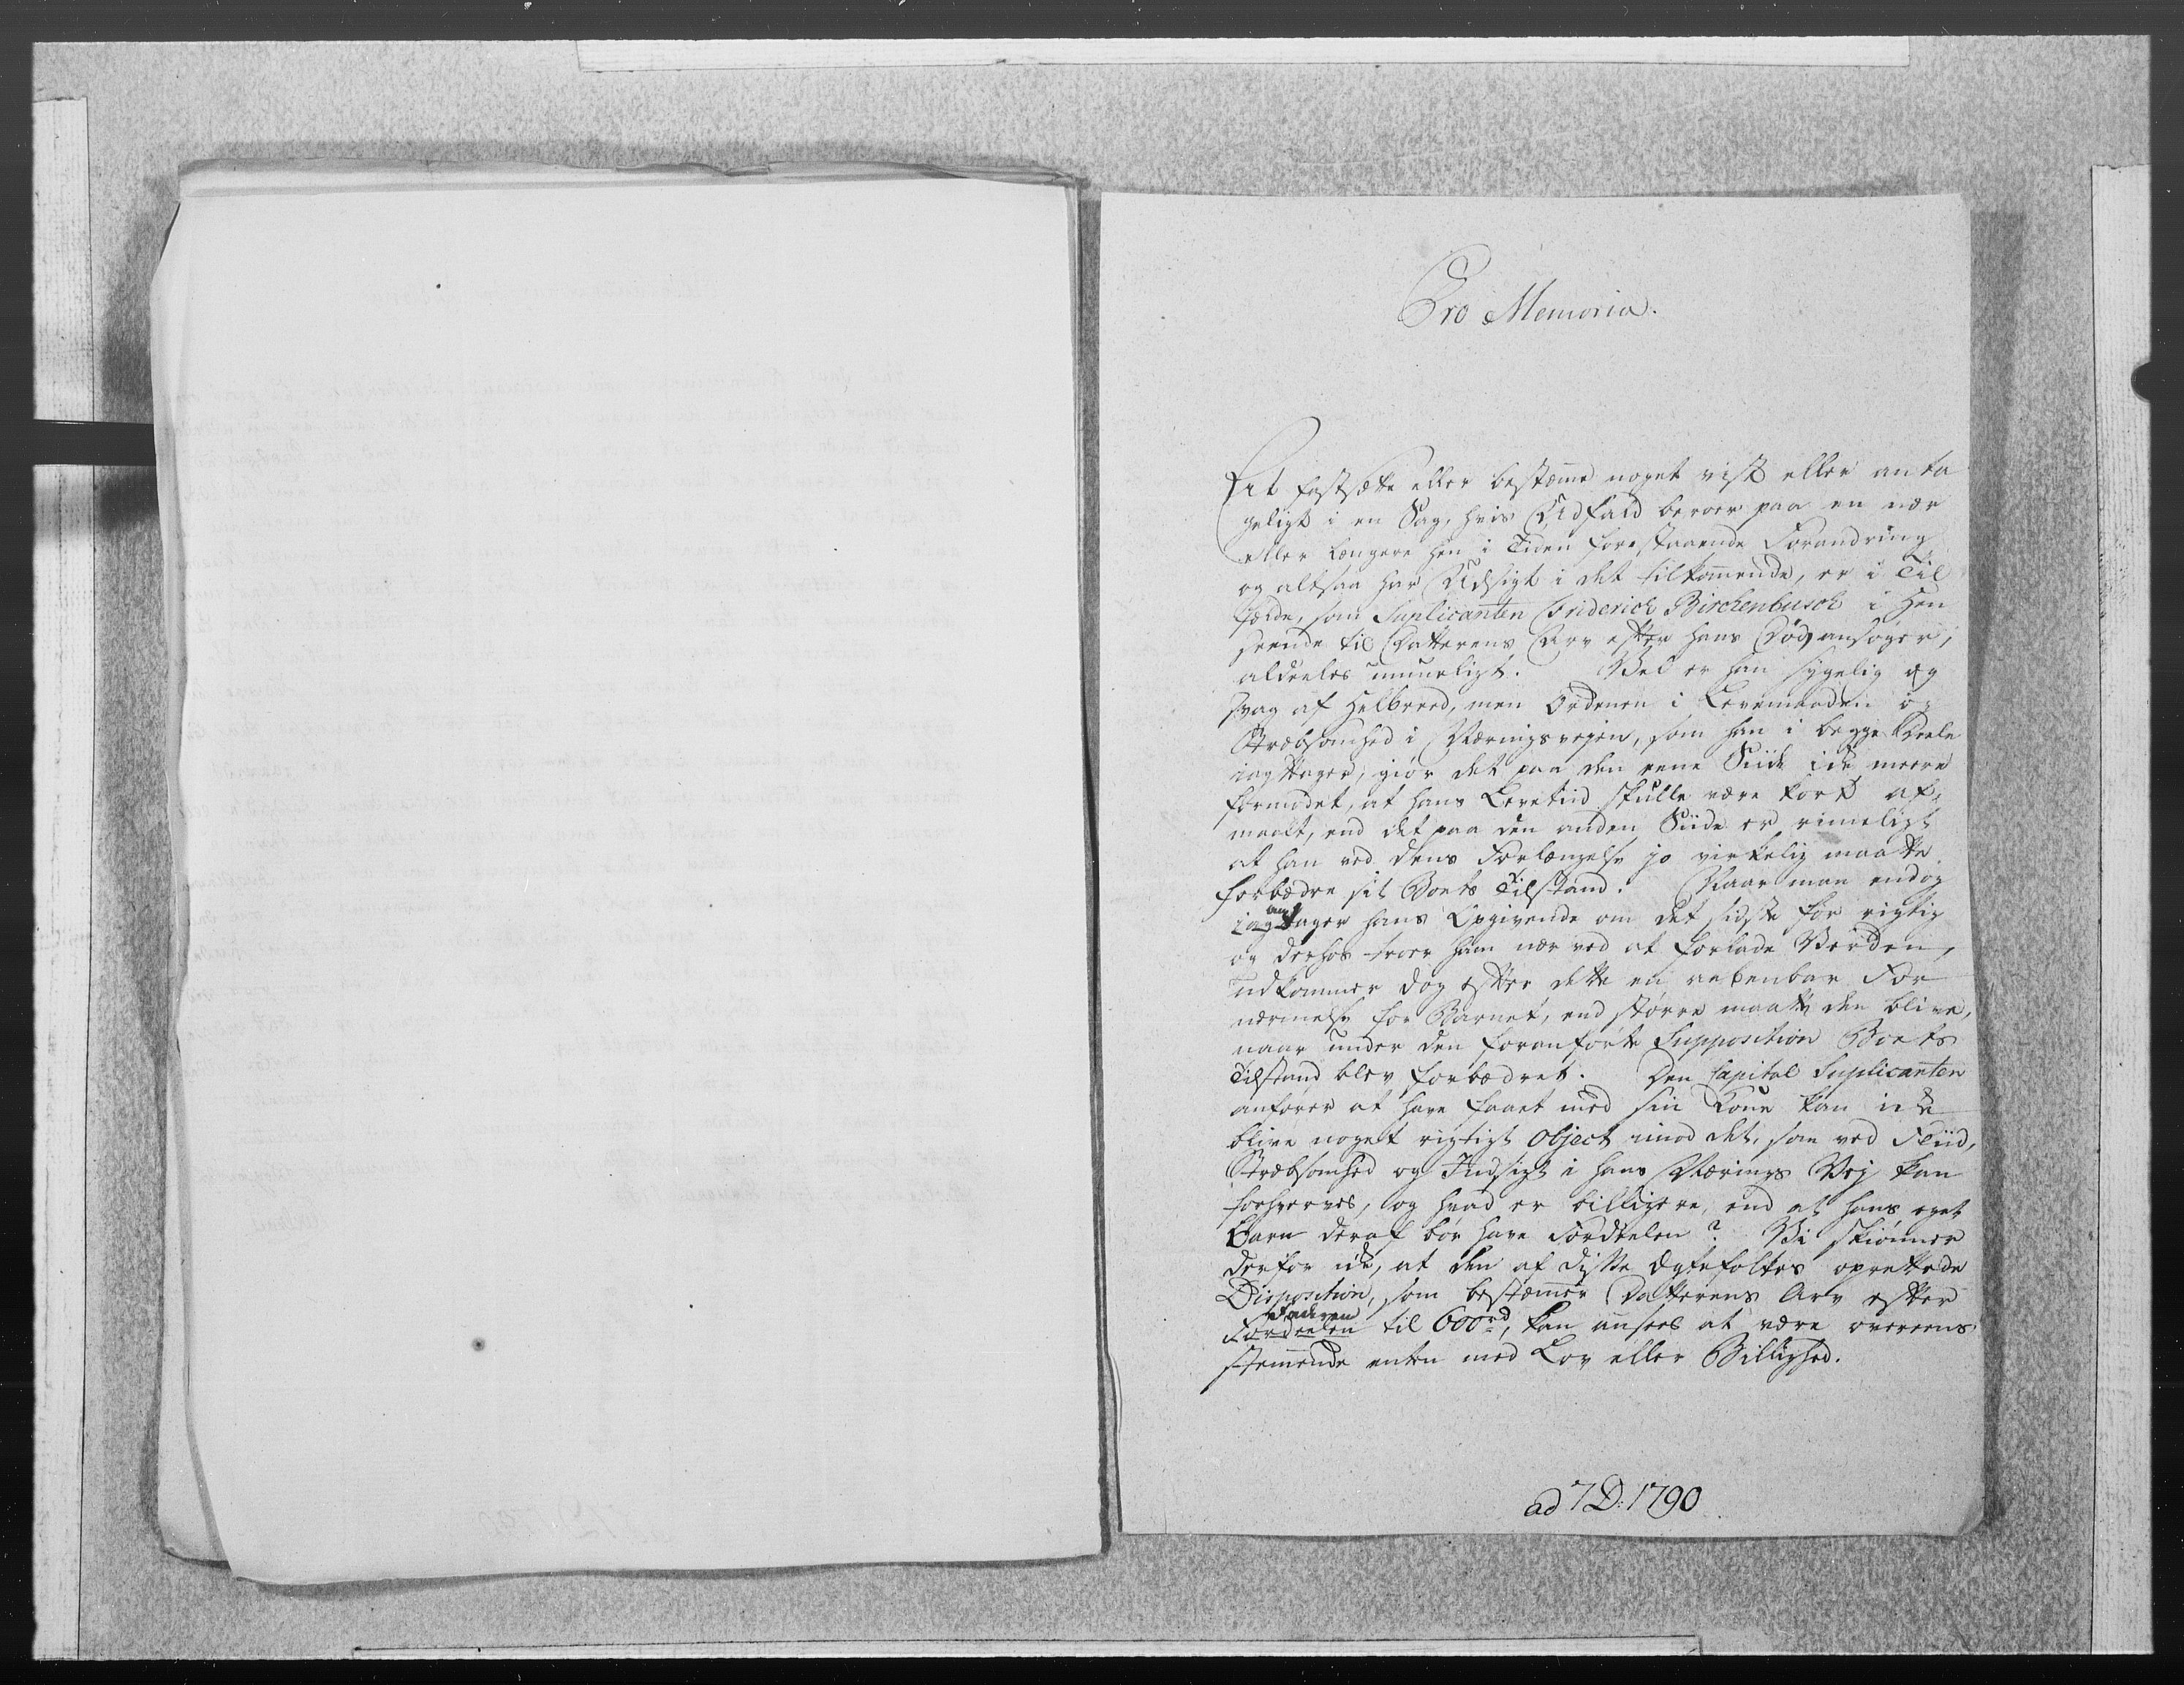 Pro Memoria.
At fastsætte eller bestæme noget vist eller anta
geligt i en Sag, hvis Udfald beroer paa en nær
eller længere hen i Tiden forestaaende Forandring
og altsaa har Udsigt i det tilkomende, er i Til
fælde, som Suplicanten Friderich Birchenbusch i Hen
seende til Datterens Arv efter hans Død ansøger,
aldeeles umueligt. Vel er han sygelig og
svag af Helbreed, men Ordenen i Levemaaden og
Stræbsomhed i Næringsvejen, som han i begge Deele
iagttager, giør det paa den eene Siide icke meere
formodet, at hans Levetiid skulle være kort af-
maalt, end det paa den anden Siide er rimeligt
at han ved dens Forlængelse jo virkelig maatte
forbædre sit Boets Tilstand. Naar man endog
antager hans Opgivende om det sidste for rigtig
og derhos troer ham nær ved at forlade Verden,
udkommer dog efter dette en aabenbar For
nærmelse for Barnet, end større maatte den blive,
naar under den foranførte Supposition Boets
Tilstand blev forbædret. Den Capital Suplicanten
anfører at have faaet med sin Kone kan icke
blive noget rigtigt Object imod det, som ved Fliid,
Stræbsomhed og Indsigt i hans Nærings Vej kan
forhverves, og hvad er billigere, end at hans eget
Barn deraf bør have Fordeelen? Vi skiønner
derfor icke, at den af disse Ægtefolkes oprettede
Disposition, som bestæmer Datterens Arv efter
Faderen til 600rd, kan ansees at være overeens-
stemende enten med Lov eller Billighed.
ad 7 D: 1790